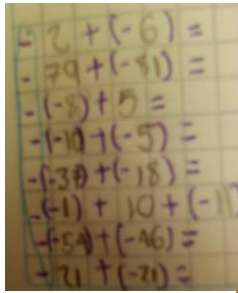 - 2 + (-6) =
- 79 + (-81) =
- (-8) + 5 =
- (-10) + (-5) =
- (-37) + (-18) =
- (-1) + 10 + (-11
- (-54) + (-46) =
- 21 + (-21) =